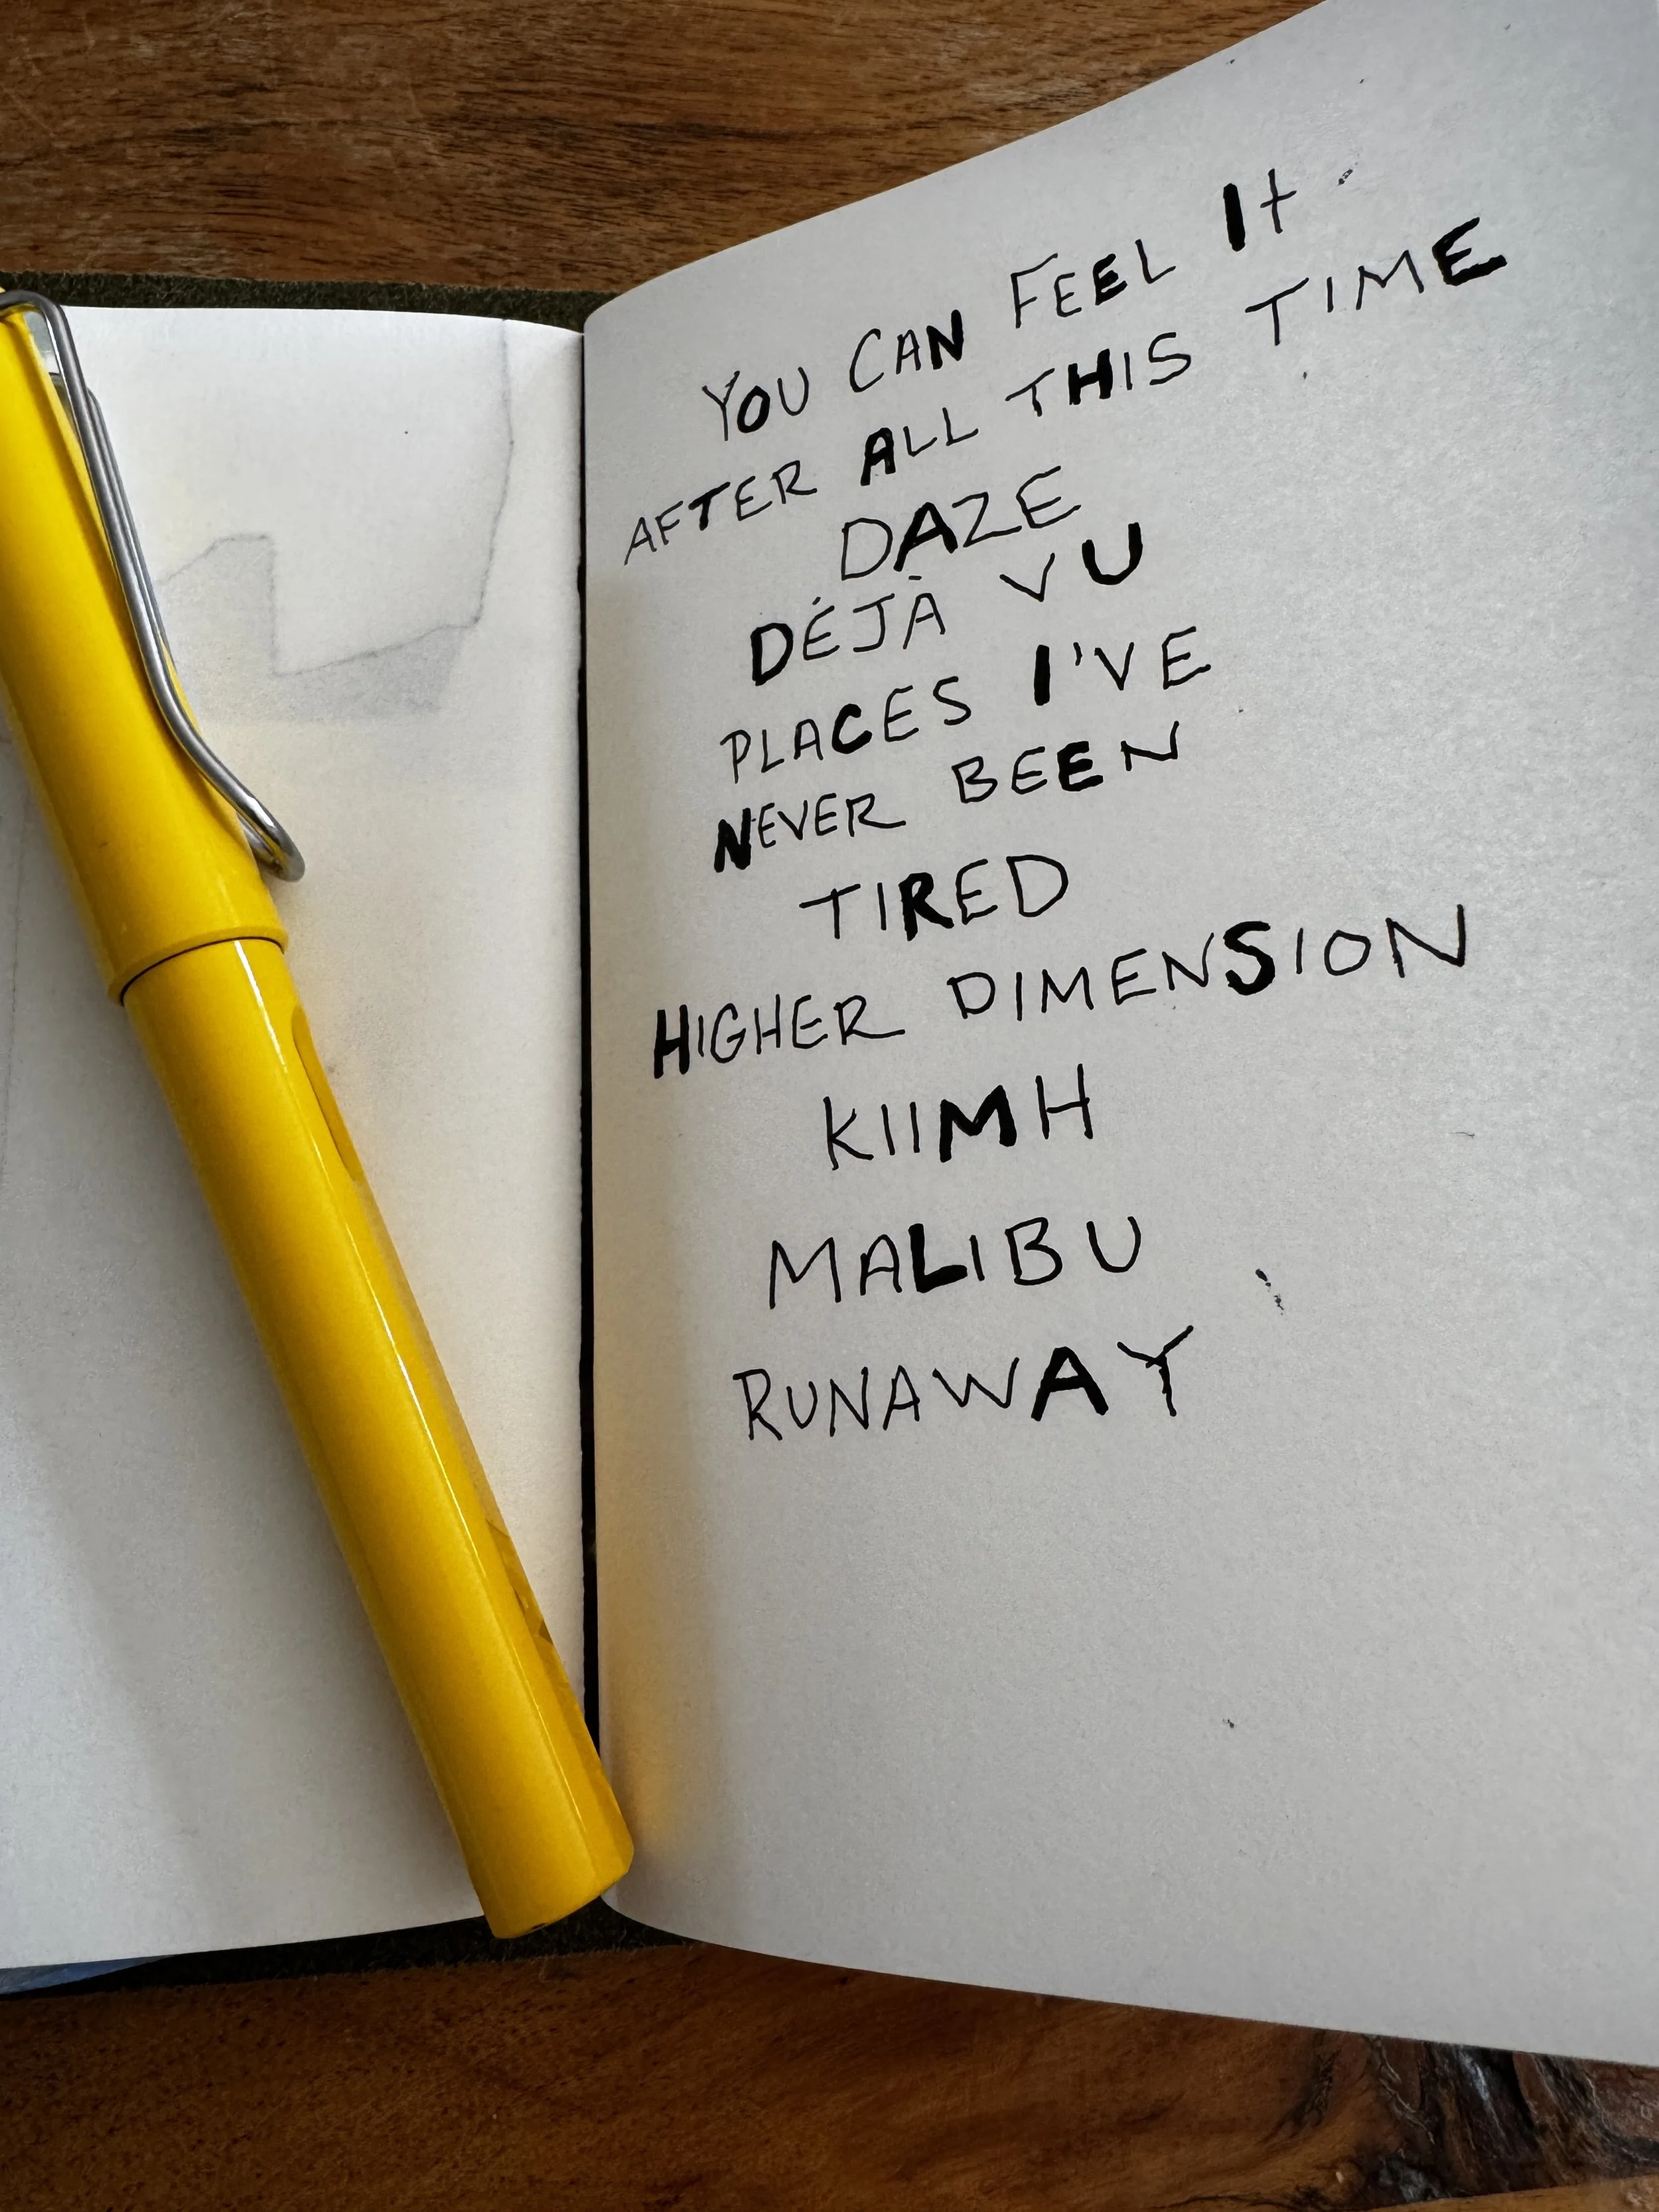 YOU CAN FEEL It
AFTER ALL THIS TIME
DAZE
DÉJÀ VU
PLACES I'VE
NEVER BEEN
TIRED
HIGHER DIMENSION
KIIMH
MALIBU
RUNAWAY